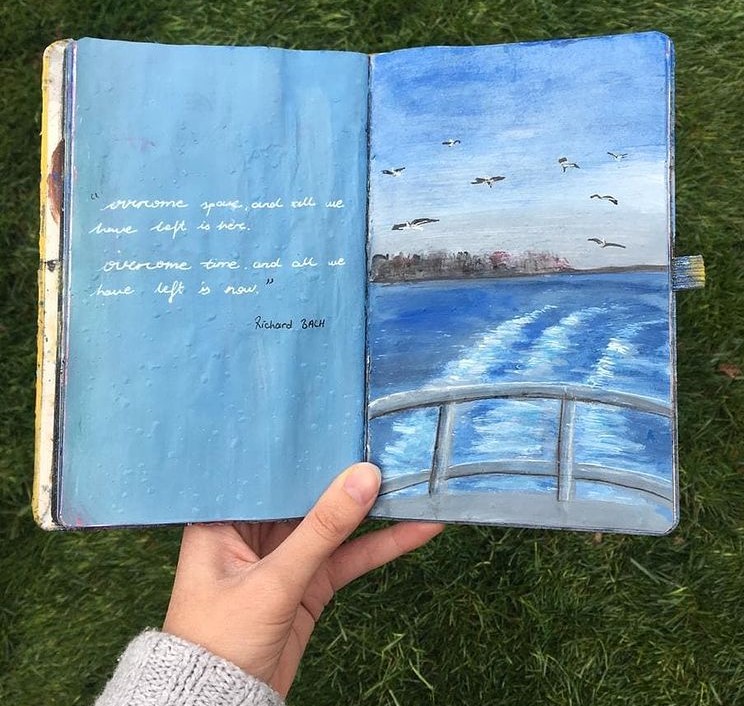 "overcome space, and all we
have left is here.
overcome time, and all we
have left is now."
Richard BACH